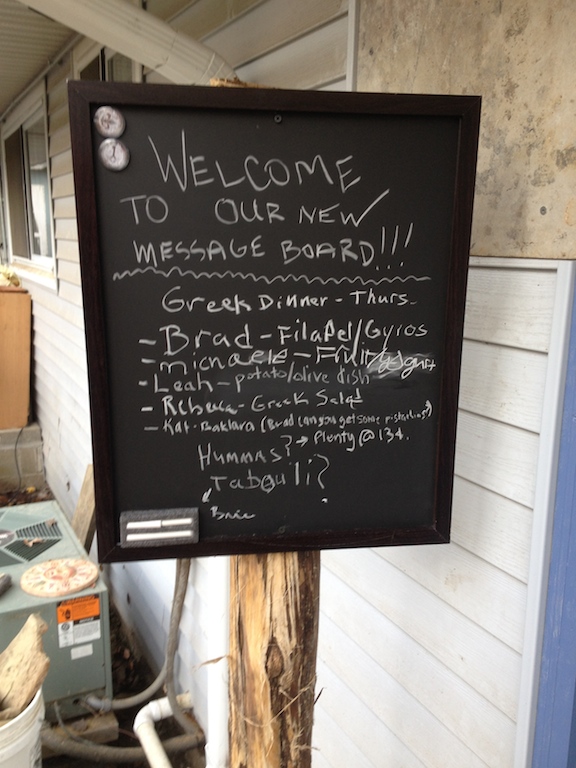 WELCOME
TO OUR NEW
MESSAGE BOARD!!!
Greek Dinner - Thurs.
- Brad - Filafel/Gyros
- michaele - Fruit/yogurt
- Leah - potato/olive dish
- Rebecca - Greek Salad
- Kat - Baklava (Brad can you get some pistachios?)
Hummas? → Plenty @ 134.
Tabouli?